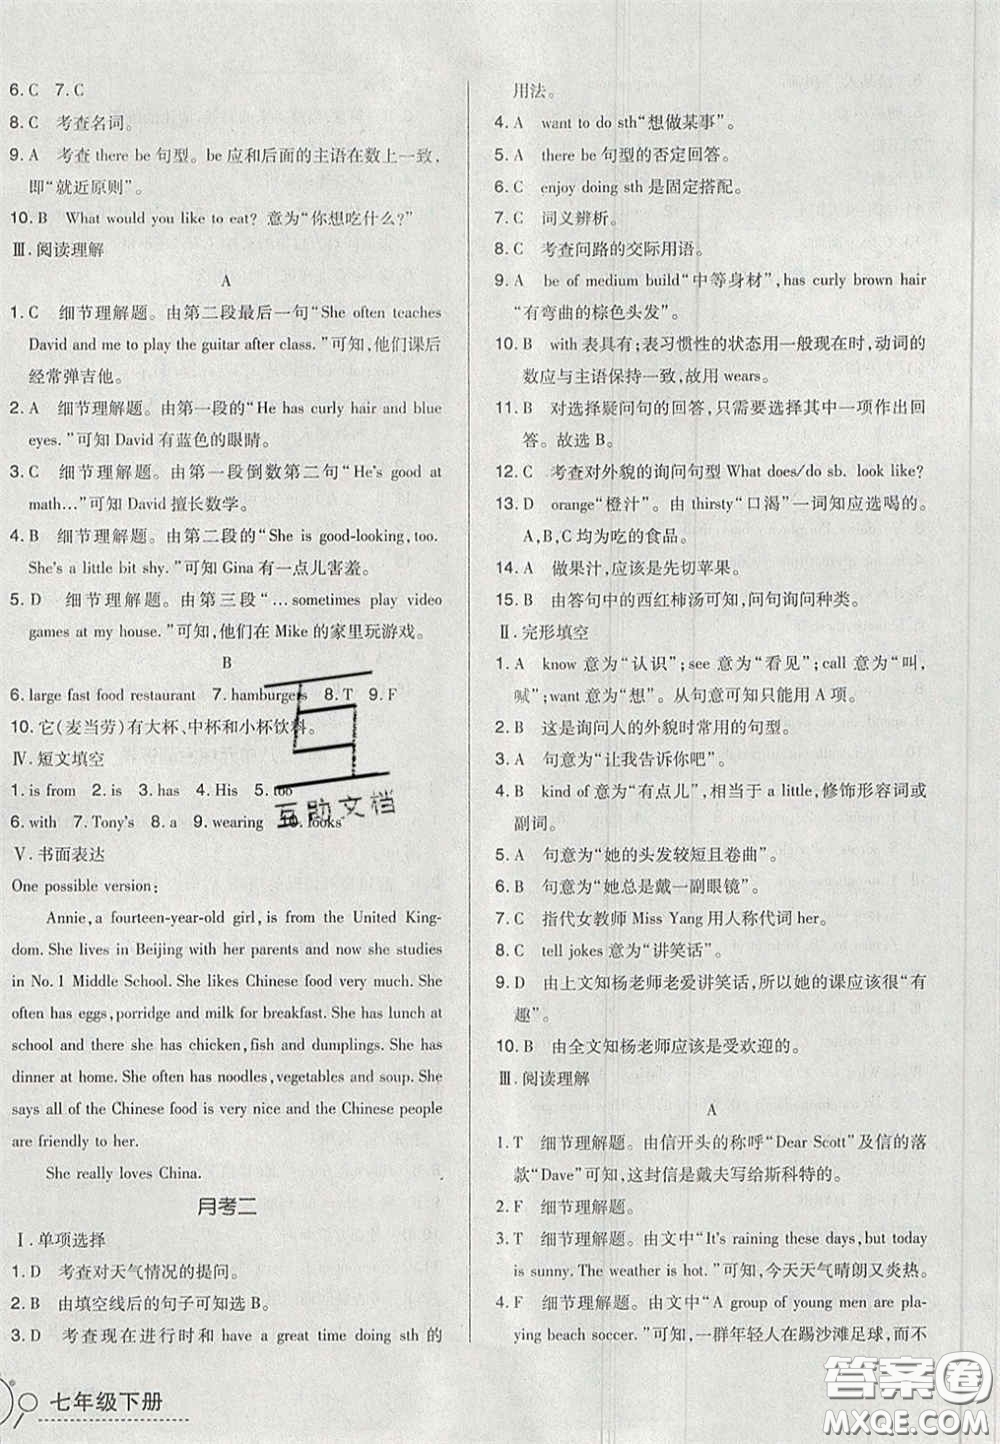 6. C  7. C
8. C  考查名词。
9. A  考查 there be 句型。be 应和后面的主语在数上一致,
即“就近原则”。
10. B  What would you like to eat? 意为“你想吃什么?”
Ⅲ. 阅读理解
A
1. C  细节理解题。由第二段最后一句“She often teaches
David and me to play the guitar after class.”可知,他们课后
经常弹吉他。
2. A  细节理解题。由第一段的“He has curly hair and blue
eyes.”可知 David 有蓝色的眼睛。
3. C  细节理解题。由第一段倒数第二句“He's good at
math…”可知 David 擅长数学。
4. B  细节理解题。由第二段的“She is good-looking, too.
She's a little bit shy.”可知 Gina 有一点儿害羞。
5. D  细节理解题。由第三段“… sometimes play video
games at my house.”可知,他们在 Mike 的家里玩游戏。
B
6. large fast food restaurant  7. hamburgers  8. T  9. F
10. 它(麦当劳)有大杯、中杯和小杯饮料。
Ⅳ. 短文填空
1. is from  2. is  3. has  4. His  5. too
6. with  7. Tony's  8. a  9. wearing  10. looks
Ⅴ. 书面表达
One possible version:
Annie, a fourteen-year-old girl, is from the United King-
dom. She lives in Beijing with her parents and now she studies
in No. 1 Middle School. She likes Chinese food very much. She
often has eggs, porridge and milk for breakfast. She has lunch at
school and there she has chicken, fish and dumplings. She has
dinner at home. She often has noodles, vegetables and soup. She
says all of the Chinese food is very nice and the Chinese people
are friendly to her.
She really loves China.
月考二
Ⅰ. 单项选择
1. D  考查对天气情况的提问。
2. B  由填空线后的句子可知选 B。
3. D  考查现在进行时和 have a great time doing sth 的
七年级下册
用法。
4. A  want to do sth“想做某事”。
5. A  there be 句型的否定回答。
6. C  enjoy doing sth 是固定搭配。
7. C  词义辨析。
8. C  考查问路的交际用语。
9. A  be of medium build“中等身材”, has curly brown hair
“有弯曲的棕色头发”。
10. B  with 表具有;表习惯性的状态用一般现在时,动词的
数应与主语保持一致,故用 wears。
11. B  对选择疑问句的回答,只需要选择其中一项作出回
答。故选 B。
12. C  考查对外貌的询问句型 What does/do sb. look like?
13. D  orange“橙汁”。由 thirsty“口渴”一词知应选喝的。
A,B,C 均为吃的食品。
14. A  做果汁,应该是先切苹果。
15. B  由答句中的西红柿汤可知,问句询问种类。
Ⅱ. 完形填空
1. A  know 意为“认识”;see 意为“看见”;call 意为“叫,
喊”;want 意为“想”。从句意可知只能用 A 项。
2. B  这是询问人的外貌时常用的句型。
3. A  句意为“让我告诉你吧”。
4. B  kind of 意为“有点儿”,相当于 a little,修饰形容词或
副词。
5. A  句意为“她的头发较短且卷曲”。
6. B  句意为“她总是戴一副眼镜”。
7. C  指代女教师 Miss Yang 用人称代词 her。
8. C  tell jokes 意为“讲笑话”。
9. D  由上文知杨老师老爱讲笑话,所以她的课应该很“有
趣”。
10. B  由全文知杨老师应该是受欢迎的。
Ⅲ. 阅读理解
A
1. T  细节理解题。由信开头的称呼“Dear Scott”及信的落
款“Dave”可知,这封信是戴夫写给斯科特的。
2. F  细节理解题。
3. T  细节理解题。由文中“It's raining these days, but today
is sunny. The weather is hot.”可知,今天天气晴朗又炎热。
4. F  细节理解题。由文中“A group of young men are pla-
ying beach soccer.”可知,一群年轻人在踢沙滩足球,而不
互助文档
答案圈
MXQE.COM